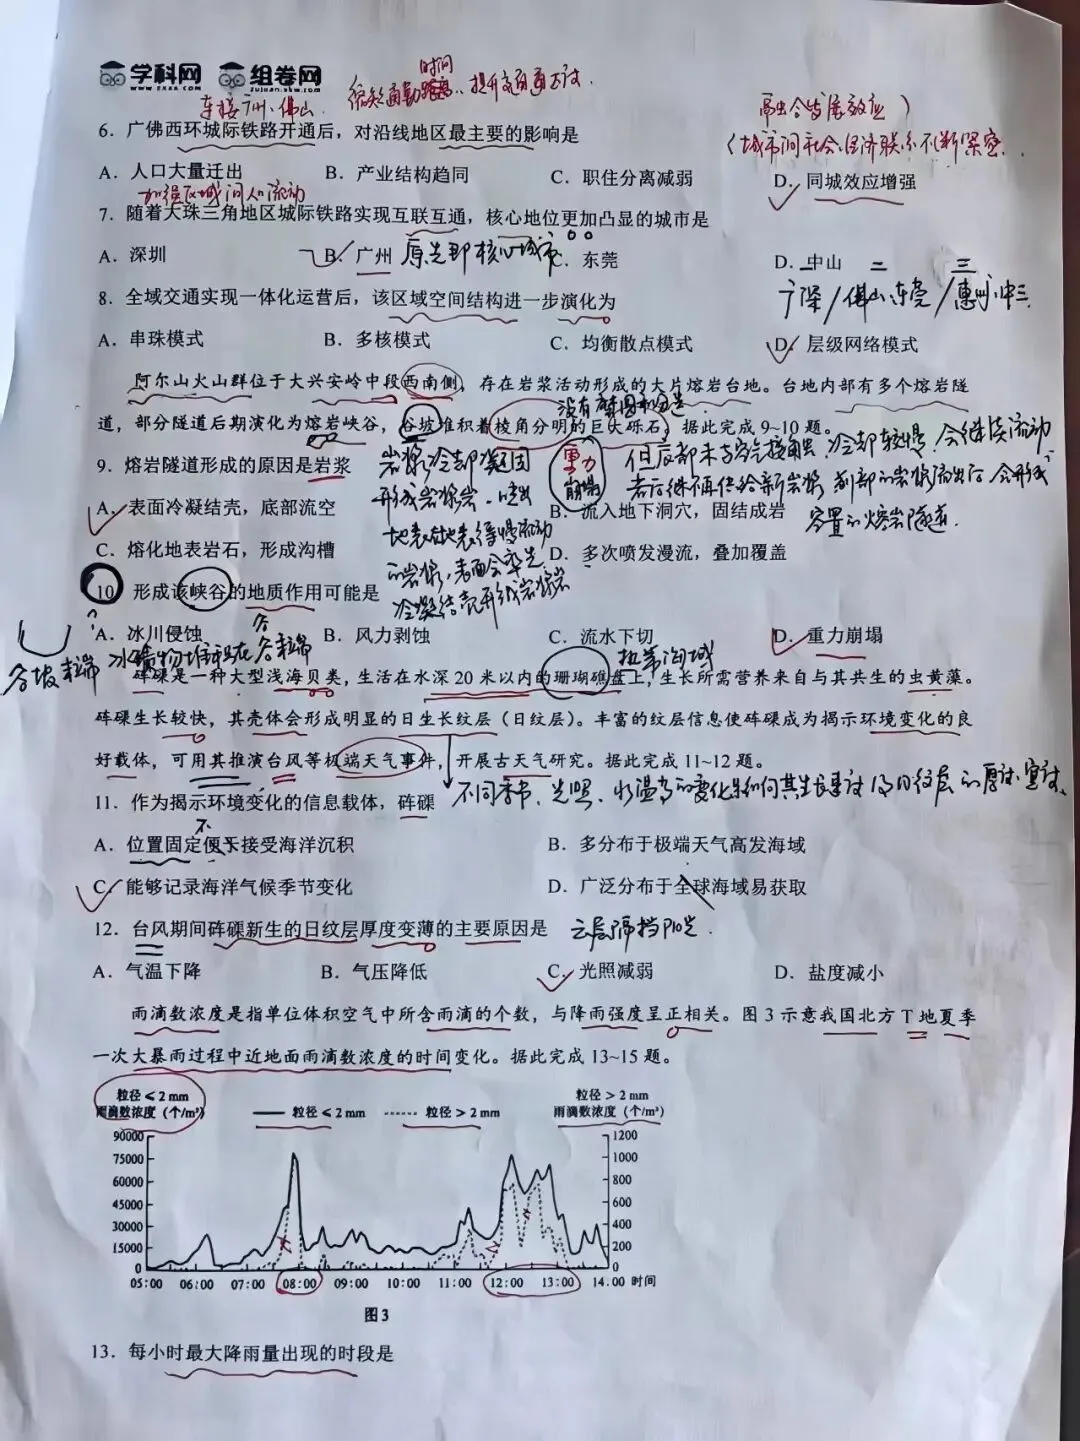 学科网 组卷网
www.zxxk.com zujuan.xkw.com
时间
连接广州、佛山
缩短通勤 提升交通通达度.
同城效应增强
(城市间社会、经济联系不断紧密.
6．广佛西环城际铁路开通后，对沿线地区最主要的影响是
A．人口大量迁出 B．产业结构趋同 C．职住分离减弱 D．同城效应增强
加强区域间人口流动
7．随着大珠三角地区城际铁路实现互联互通，核心地位更加凸显的城市是
A．深圳 B．广州 原先即核心城市 C．东莞 D．中山
一 二 三
广深/佛山、东莞/惠州、中三
8．全域交通实现一体化运营后，该区域空间结构进一步演化为
A．串珠模式 B．多核模式 C．均衡散点模式 D．层级网络模式
阿尔山火山群位于大兴安岭中段西南侧，存在岩浆活动形成的大片熔岩台地。台地内部有多个熔岩隧
没有磨圆和分选
道，部分隧道后期演化为熔岩峡谷，谷坡堆积着棱角分明的巨大砾石。据此完成 9~10 题。
9．熔岩隧道形成的原因是岩浆
岩浆冷却凝固
形成岩浆岩.喷出
地表在地表缓慢流动
的岩浆，表面会率先
冷凝结壳形成岩浆岩
重力
崩塌
但底部未与空气接触，冷却较慢，会继续流动
若后继不再供给新岩浆，到部的岩浆流出后会形成
容置的熔岩隧道.
A．表面冷凝结壳，底部流空 B．流入地下洞穴，固结成岩
C．熔化地表岩石，形成沟槽 D．多次喷发漫流，叠加覆盖
10．形成该峡谷的地质作用可能是
A．冰川侵蚀 B．风力剥蚀 C．流水下切 D．重力崩塌
谷坡末端 冰碛物堆积在谷末端
热带海域
砗磲是一种大型浅海贝类，生活在水深 20 米以内的珊瑚礁盘上，生长所需营养来自与其共生的虫黄藻。
砗磲生长较快，其壳体会形成明显的日生长纹层（日纹层）。丰富的纹层信息使砗磲成为揭示环境变化的良
好载体，可用其推演台风等极端天气事件，开展古天气研究。据此完成 11~12 题。
不同季节、光照、水温等的变化影响其生长速度及日纹层的厚度、宽度、
11．作为揭示环境变化的信息载体，砗磲
不
A．位置固定便于接受海洋沉积 B．多分布于极端天气高发海域
C．能够记录海洋气候季节变化 D．广泛分布于全球海域易获取
12．台风期间砗磲新生的日纹层厚度变薄的主要原因是 云层阻挡阳光.
A．气温下降 B．气压降低 C．光照减弱 D．盐度减小
雨滴数浓度是指单位体积空气中所含雨滴的个数，与降雨强度呈正相关。图 3 示意我国北方 T 地夏季
一次大暴雨过程中近地面雨滴数浓度的时间变化。据此完成 13~15 题。
粒径≤2 mm
雨滴数浓度（个/m³）
粒径≤2 mm 粒径＞2 mm
粒径＞2 mm
雨滴数浓度（个/m³）
90000 1200
75000 1000
60000 800
45000 600
30000 400
15000 200
0 0
05:00 06:00 07:00 08:00 09:00 10:00 11:00 12:00 13:00 14:00 时间
图3
13．每小时最大降雨量出现的时段是